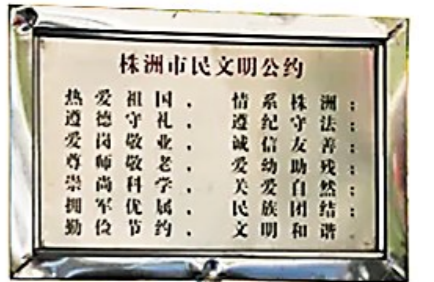 株洲市民文明公约
热爱祖国，情系株洲；
遵德守礼，遵纪守法；
爱岗敬业，诚信友善；
尊师敬老，爱幼助残；
崇尚科学，关爱自然；
拥军优属，民族团结；
勤俭节约，文明和谐